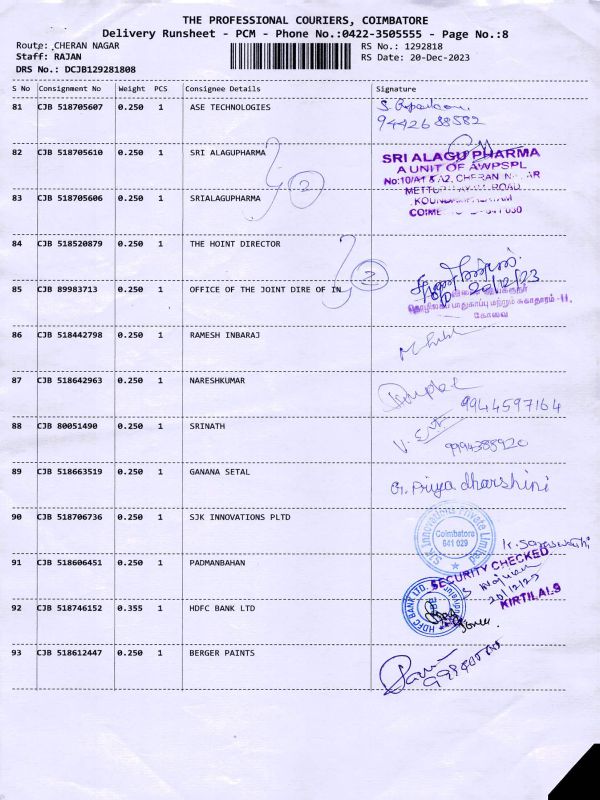 THE PROFESSIONAL COURIERS, COIMBATORE
Delivery Runsheet - PCM - Phone No.:0422-3505555 - Page No.:8
Route: CHERAN NAGAR
RS No.: 1292818
Staff: RAJAN
RS Date: 20-Dec-2023
DRS No.: DCJB129281808
S No Consignment No Weight PCS Consignee Details Signature
81 CJB 518705607 0.250 1 ASE TECHNOLOGIES
9442688582
82 CJB 518705610 0.250 1 SRI ALAGUPHARMA
2
SRI ALAGU PHARMA
A UNIT OF AWPSPL
No:10/A1 & A2, CHERAN
ROAD
83 CJB 518705606 0.250 1 SRIALAGUPHARMA
84 CJB 518520879 0.250 1 THE HOINT DIRECTOR
2
20/12/23
85 CJB 89983713 0.250 1 OFFICE OF THE JOINT DIRE OF IN
பாதுகாப்பு மற்றும் சுகாதாரம் -II,
கோவை
86 CJB 518442798 0.250 1 RAMESH INBARAJ
87 CJB 518642963 0.250 1 NARESHKUMAR
9944597164
88 CJB 80051490 0.250 1 SRINATH
89 CJB 518663519 0.250 1 GANANA SETAL
G. Priya dharshini
90 CJB 518706736 0.250 1 SJK INNOVATIONS PLTD
SJK Innovations Private Limited
Coimbatore
641 029
91 CJB 518606451 0.250 1 PADMANBAHAN
SECURITY CHECKED
20/12/23
KIRTILAL.9
92 CJB 518746152 0.355 1 HDFC BANK LTD
HDFC BANK LTD.
93 CJB 518612447 0.250 1 BERGER PAINTS